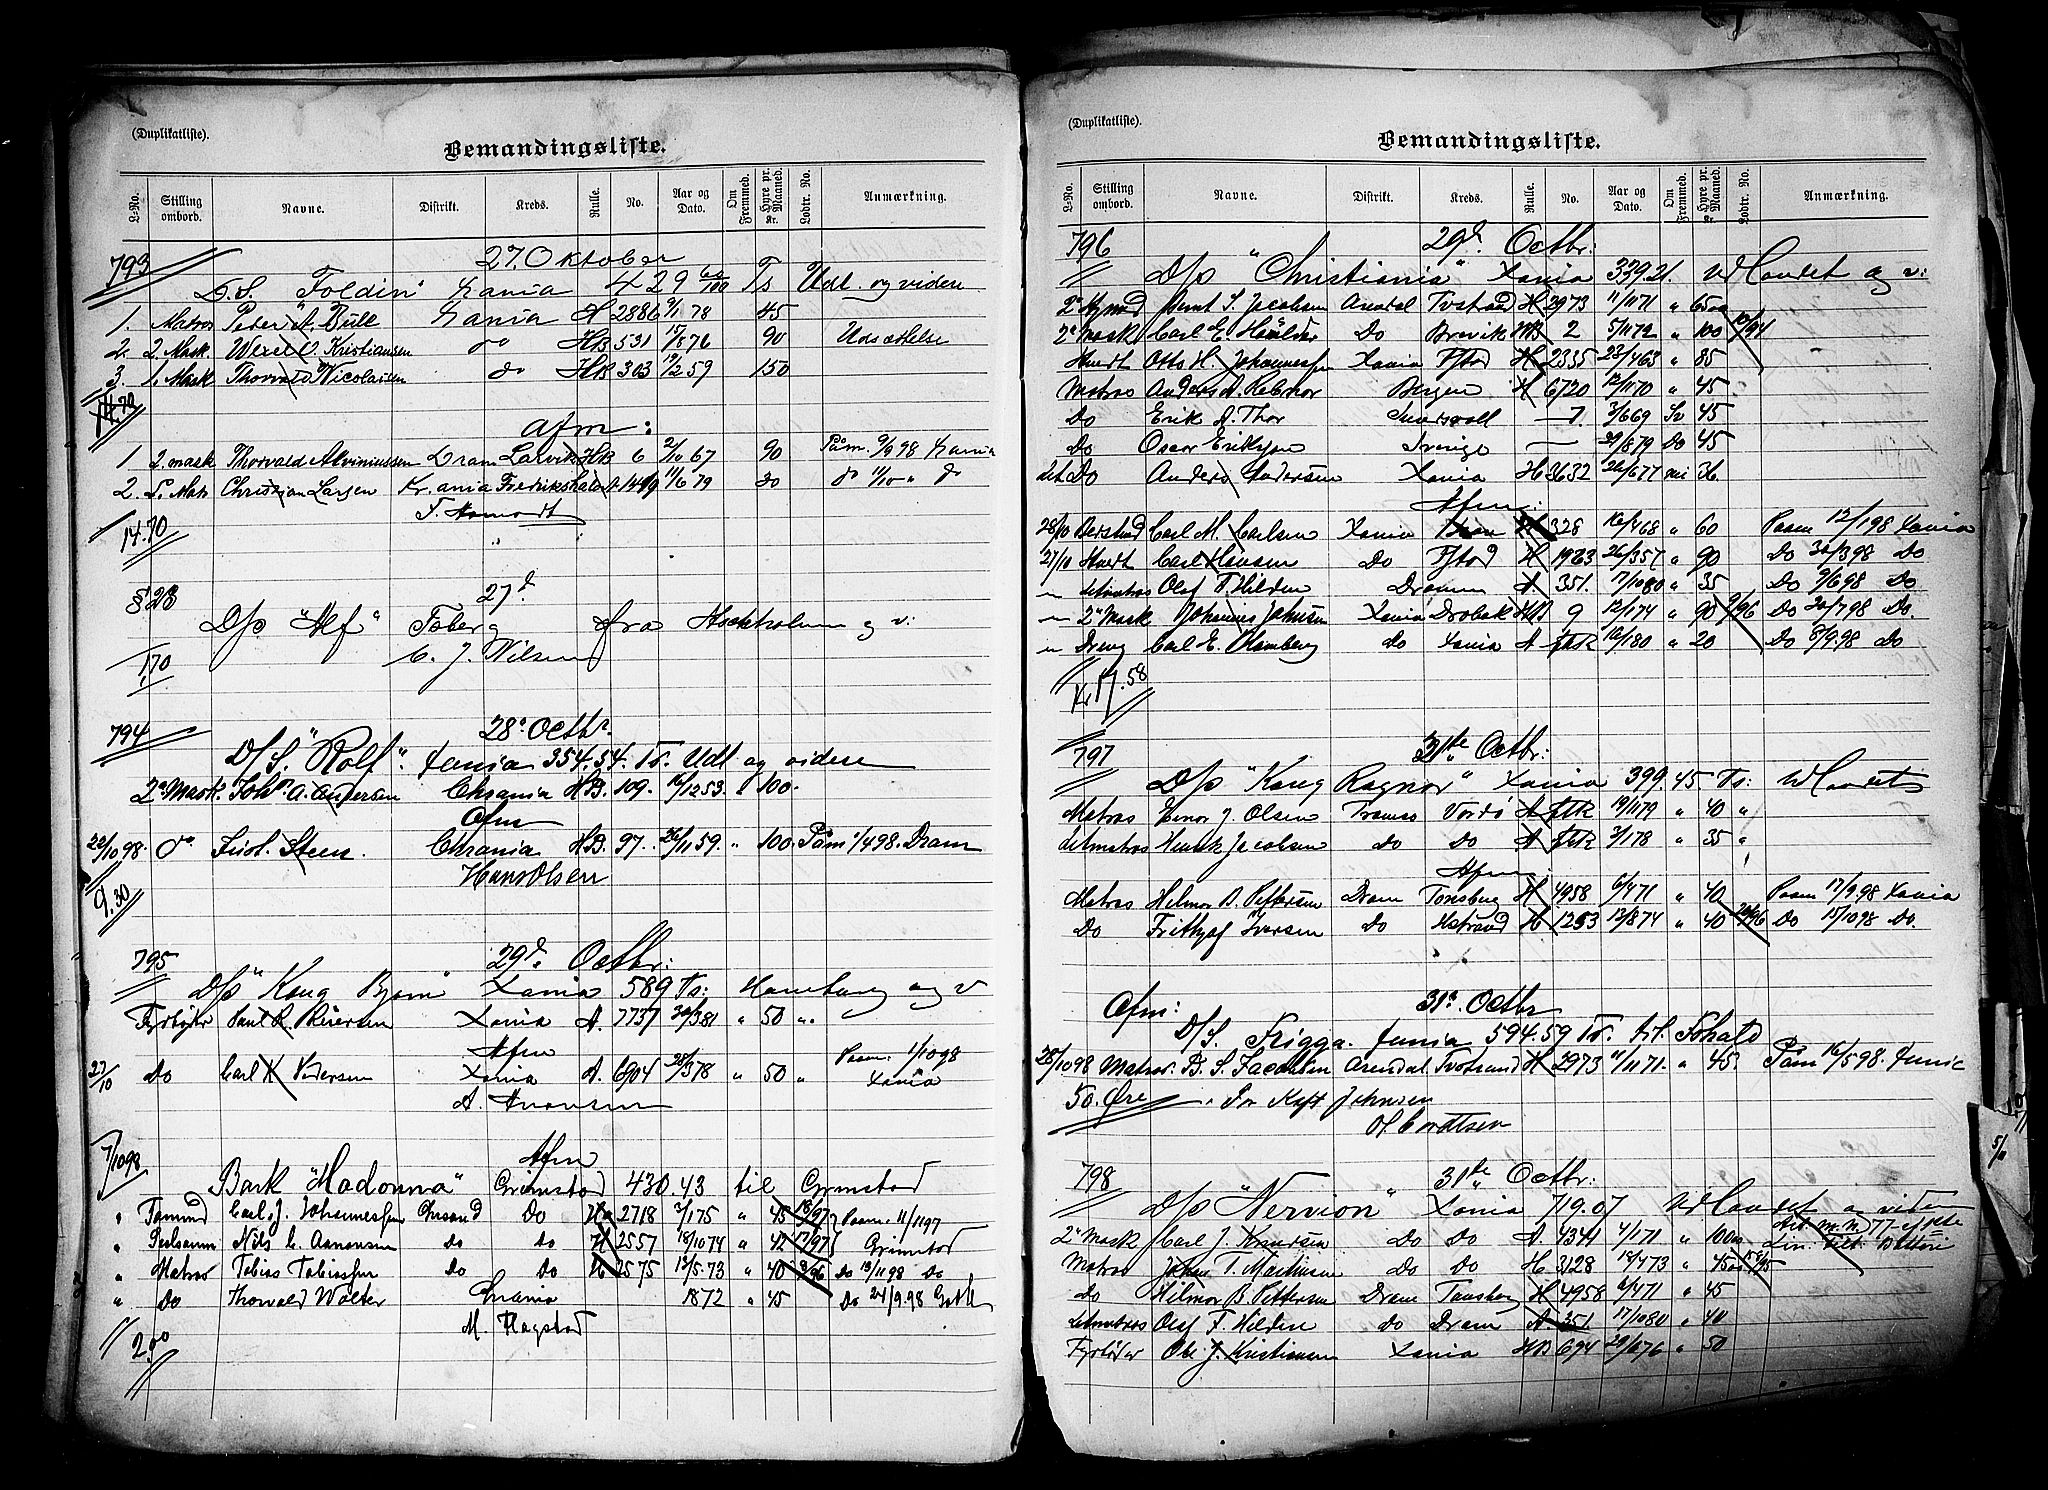 (Duplikatliste).
Bemandingsliste.
L-No. Stilling ombord. Navne. Distrikt. Kreds. Rulle. No. Aar og Dato. Om Fremmed. Hyre pr. Maaned. Kr. Lodtr. No. Anmærkning.
793 27. Oktober
D.S. "Foldin" Xania 429 60/100 Ts Udl. og videre
1. Matros Peter A. Bull Xania H 2886 9/1 78 45
2. 2. Mask. Wexel O. Kristiansen do HB 531 17/8 76 90 Udsættelse
3. 1. Mask Thorvald Nicolaisen do HB 303 12/2 59 150
14.70
Afm:
1 2. mask Thorvald Alviniussen Dram Larvik HB 6 2/10 67 90 Påm. 9/9 98 Xania
2. Matr Christian Larsen Kr.ania Fredrikshald 1499 11/6 79 do do 11/10 " do
14.70
§ 28 27d
D/s "Alf" Toberg fra Stockholm og v:
C. J. Nilsen
1,70
794 28. Octbr.
D/S. "Rolf". Xania 354.54. To. Udl og videre
2. Mask. Joh. A. Andersen Chrania HB. 109. 16/12 53. " 100.
Afm
22/10 98. do Steen. Chrania HB. 97. 26/11 59. " 100. Påm 1/4 98. Dram
Hans Olsen
9.30
795 29d. Octbr:
D/s "Kong Bjørn" Xania 589 Ts: Hamburg og v
Fyrbøder Paul R. Reiersen Xania A. 7737 30/3 81 " 50 ".
Afm
27/10 Do Carl Pedersen Xania A. 6904 28/3 78 " 50 " Paam. 1/10 98 Xania
A. Aronsen
7/10 98 Afm
Bark "Madonna" Grimstad 430.43 til Grimstad
" Tømmd Carl J. Johannessen Chrsand Do 2718 2/1 75 " 45 18/97 Paam. 11/11 97
" Seilsømm Nils C. Aanonsen Do Do H 2557 18/10 74 " 42 17/97 Grimstad
" Matros Tobias Tobiassen Do Do H 2575 12/5 73 " 40 9/96 Do 13/11 98 Do
" Do Thorvald Walter Chrania 1872 " 45 Do 24/9.98
M. Flagstad
2.00
(Duplikatliste).
Bemandingsliste.
L-No. Stilling ombord. Navne. Distrikt. Kreds. Rulle. No. Aar og Dato. Om Fremmed. Hyre pr. Maaned. Kr. Lodtr. No. Anmærkning.
796 29d. Octbr:
D/s "Christiania" Xania 339.21. Udlandet og v:
2. Bernt S. Jacobsen Arendal Tvestrand H 2973 11/11 71 " 65
2. Mask Carl E. Do Brevik HB 2 5/11 72 " 100 10/94
Otto H. Johannessen Xania Fstad H 2335 23/4 63 " 85
Matros Anders A. Bergen H 6720 12/11 70 " 45
Do Erik A. Thor 3/6 69 Sv 45
Do Oscar Eriksen Sverige 29/8 79 Do 45
Do Anders Andersen Xania H 3632 26/6 77 36
Afm:
28/10 Carl M. Carlsen Xania 328 16/4 68 " 60 Paam 12/1 98 Xania
27/10 Carl Hansen Do Fstad H 1963 26/3 57 " 90 Do 30/3 98 Do
" Letmatros Olaf T. Hilden Dramm A. 351. 17/10 80 " 35 Do 9/6 98 Do
" 2. Mask Johannes Johnsen Xania Drøbak HB 9 12/1 74 " 90 9/96 Do 20/7 98 Do.
" Dreng Carl E. Hamberg do Xania A ftk 12/1 80 " 20 Do 8/9.98 Do
Kr 17.58
797 31te Octbr:
D/s "Kong Ragnar" Xania 399.45. Ts: Udlandet
Matros Einar J. Olsen Tromsø Vardø A ftk 19/11 79 " 40 "
Letmatros Henrik Jacobsen do do A ftk 3/1 78 " 35 "
Afm:
Matros Hilmar B. Pettersen Dram Tønsberg H 4958 6/4 71 " 40 Paam 17/9.98 Xania
Do Frithjof Iversen Do Hstrand H 1253 13/8 74 " 40 Do 15/10 98 Do.
Afm: 31. Octbr
D/S. Frigga. Xania 594.59 To.
28/10 98 Matros. B. S. Jacobsen Arendal Tvestrand H 2973 11/11 71. " 45. Påm 16/5 98. Xania
50. Øre Johnsen
798 31te Octbr:
D/s "Nervion" Xania 719.07 Udlandet o viden
2. Mask Carl J. Knudsen Do Do A. 4341 4/1 71 " 100
Matros Johan T. Martinsen Do Do H 3128 18/4 73 " 45
do Hilmar B. Pettersen Dram Tønsberg H 4958 6/4 71 " 45
Letmatros Olaf T. Hilden do Dram A 351. 17/10 80 " 40
Fyrbøder Ole J. Kristiansen Xania HB 694 29/6 76 " 50